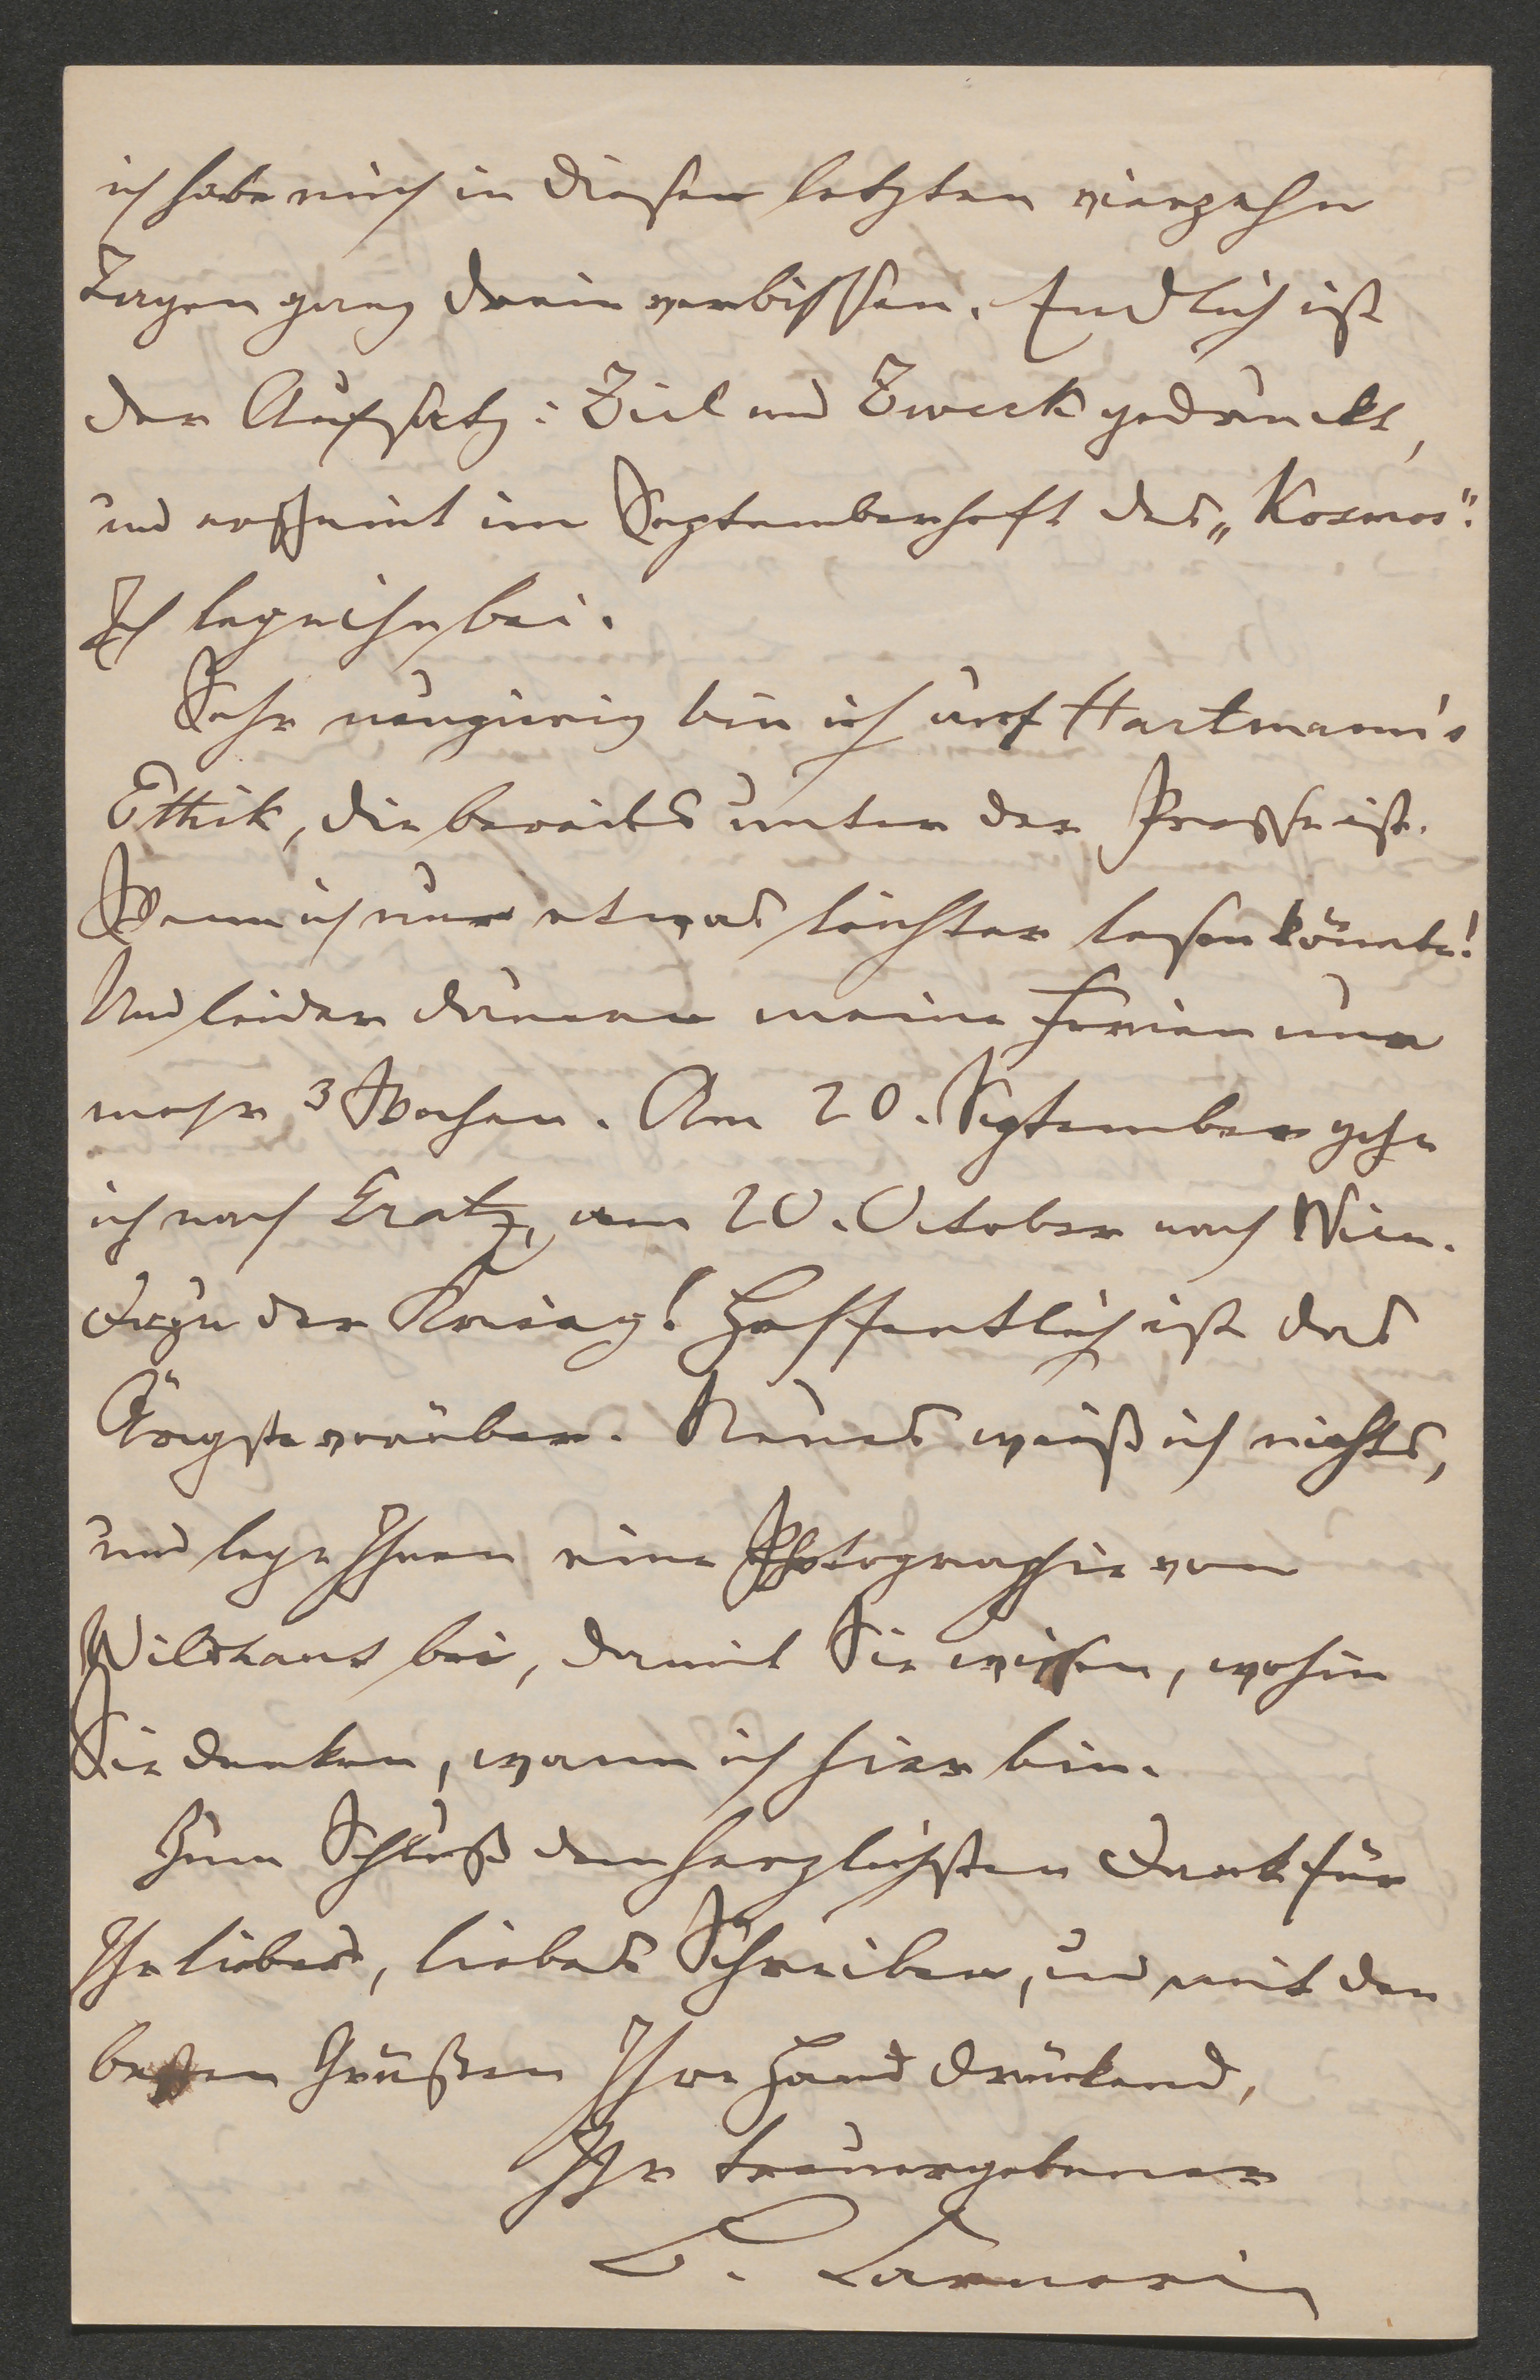 ich habe mich in diesen letzten vierzehn
Tagen ganz drein verbissen. Endlich ist
der Aufsatz: Ziel und Zweck gedruckt,
und erscheint im Septemberheft des „Kosmos".
Ich lege ihn bei.
Sehr neugierig bin ich auf Hartmann's
Ethik, die bereits unter der Presse ist.
Wenn ich nur etwas leichter lesen könnte!
Und leider dauern meine Ferien nur
mehr 3 Wochen. Am 20. September gehe
ich nach Gratz, am 20. October nach Wien.
Dazu der Krieg! Hoffentlich ist das
Ärgste vorüber. Neues weiß ich nichts,
und lege Ihnen eine Photographie von
Wildhaus bei, damit Sie wissen, wohin
Sie denken, wann ich hier bin.
Zum Schluß den herzlichsten Dank für
Ihr liebes, liebes Schreiben, und mit den
besten Grüßen Ihre Hand drückend,
Ihr treuergebener
B. Carneri